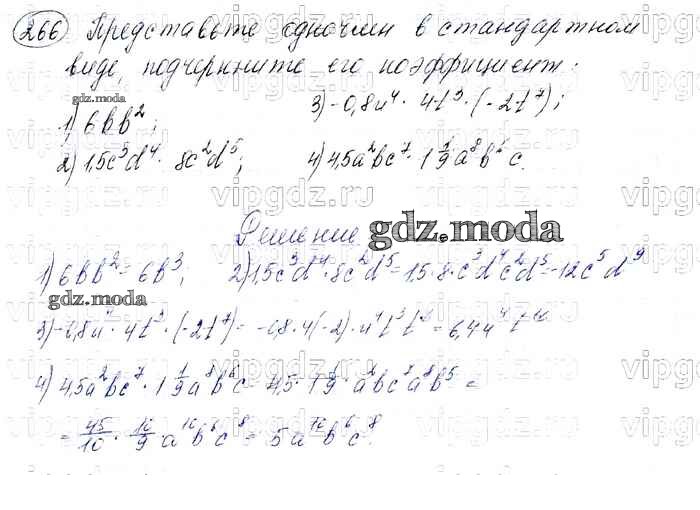 266 Представьте одночлен в стандартном
виде, подчеркните его коэффициент:
gdz.moda
1) 6bb²;
3) -0,8u⁴ · 4t³ · (-2t⁷);
2) 1,5c³d⁴ · 8c²d⁵;
4) 4,5a²bc⁷ · 1 1/9 a⁸b⁵c.
Решение gdz.moda
1) 6bb² = 6b³; 2) 1,5c³d⁴ · 8c²d⁵ = 1,5 · 8 · c³d⁴c²d⁵ = 12c⁵d⁹
gdz.moda
3) -0,8u⁴ · 4t³ · (-2t⁷) = -0,8 · 4(-2) · u⁴t³t⁷ = 6,4u⁴t¹⁰
4) 4,5a²bc⁷ · 1 1/9 a⁸b⁵c = 4,5 · 1 1/9 · a²bc⁷a⁸b⁵ =
= 45/10 · 10/9 a¹⁰b⁶c⁸ = 5a¹⁰b⁶c⁸.
vipgdz.ru